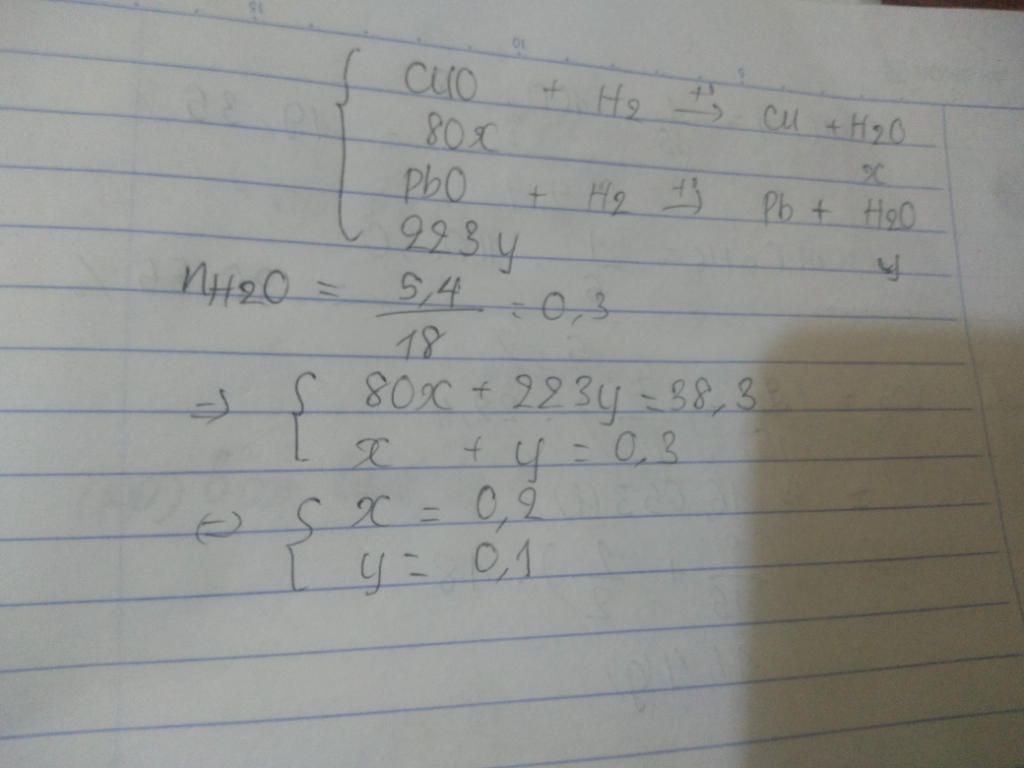 CuO + H2 →t° Cu + H2O
80x x
PbO + H2 →t° Pb + H2O
223y y
nH2O = 5,4/18 = 0,3
=> { 80x + 223y = 38,3
x + y = 0,3
<=> { x = 0,2
y = 0,1